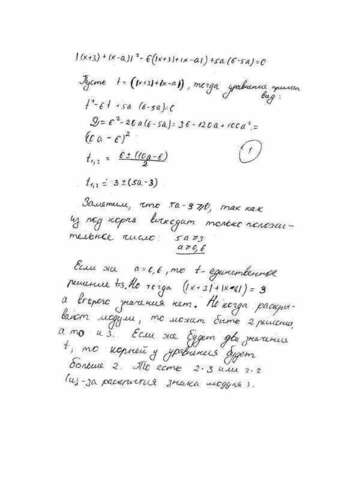 |(x+3)+|x-a||² - 6(|x+3|+|x-a|)+5a(6-5a)=0
Пусть t = (|x+3|+|x-a|), тогда уравнение примет
вид:
t²-6t+5a(6-5a)=0
D=6²-20a(6-5a)=36-120a+100a²=
(10a-6)²
t₁,₂ = 6±(10a-6)/2
1
t₁,₂ = 3±(5a-3)
Заметим, что 5a-3≥0, так как
из под корня выходит только положи-
тельное число: 5a≥3
a≥0,6
Если же a=0,6, то t-единственное
решение t=3. Но тогда (|x+3|+|x-a|)=3
а второго значения нет. Но когда раскры-
вают модули, то может быть 2 решения,
а то и 3. Если же будет два значения
t, то корней у уравнения будет
больше 2. То есть 2·3 или 2·2
(из-за раскрытия знака модуля).